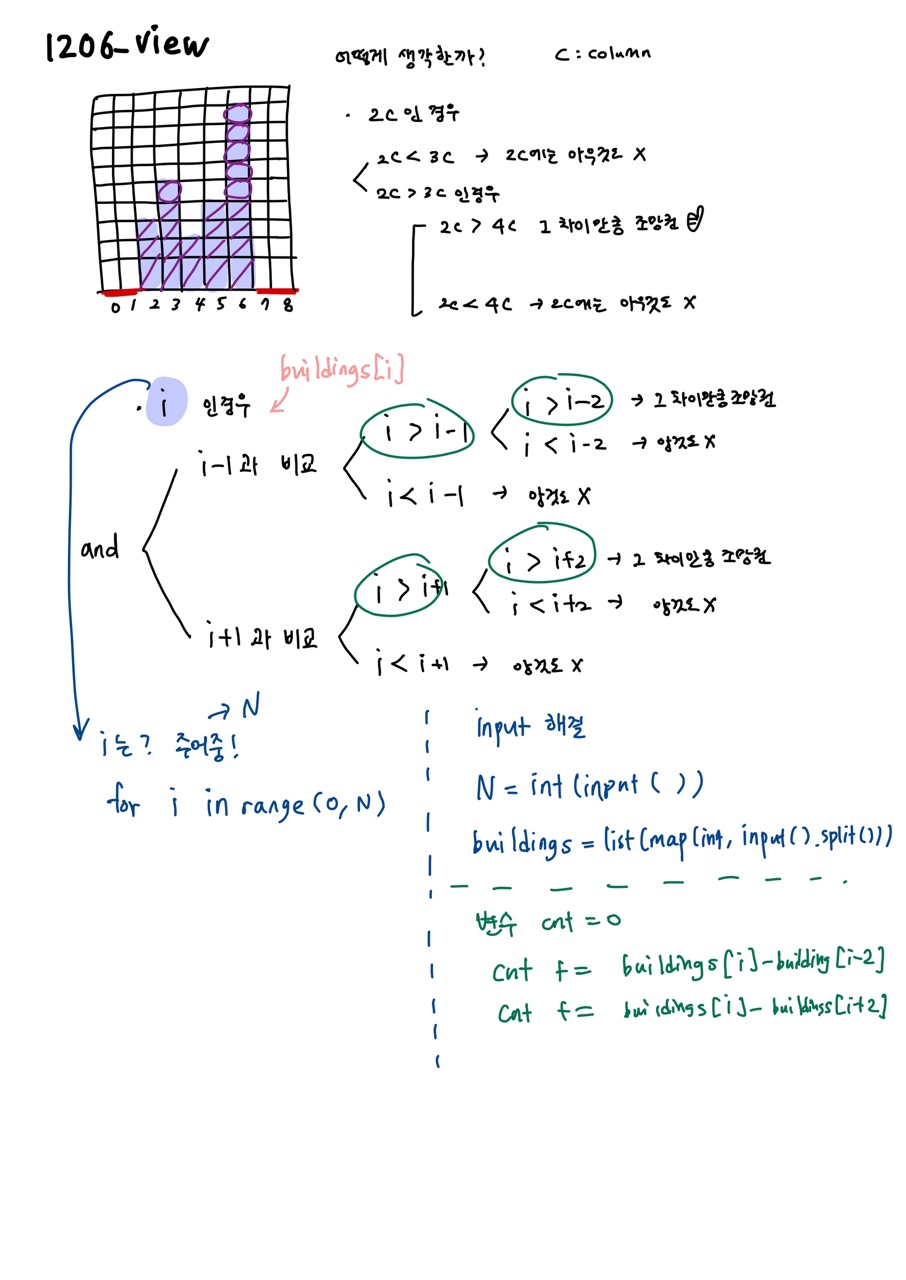 1206_view
어떻게 생각한까? C : column
0 1 2 3 4 5 6 7 8
· 2C 인 경우
2C < 3C → 2C에는 아무것도 X
2C > 3C 인경우
2C > 4C 그 차이만큼 조망권
2C < 4C → 2C에는 아무것도 X
buildings[i]
· i 인경우
and
i-1과 비교
i > i-1
i > i-2 → 그 차이만큼조망권
i < i-2 → 암것도 X
i < i-1 → 암것도 X
i+1과 비교
i > i+1
i > i+2 → 그 차이만큼 조망권
i < i+2 → 암것도 X
i < i+1 → 암것도 X
→ N
i는? 주어줌!
for i in range(0, N)
input 해결
N = int(input())
buildings = list(map(int, input().split()))
변수 cnt = 0
cnt += buildings[i]-building[i-2]
cnt += buildings[i]- buildings[i+2]